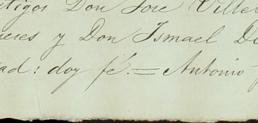 tigos Don José Ville
eres y Don Ismael D
ad: doy fé.= Antonio